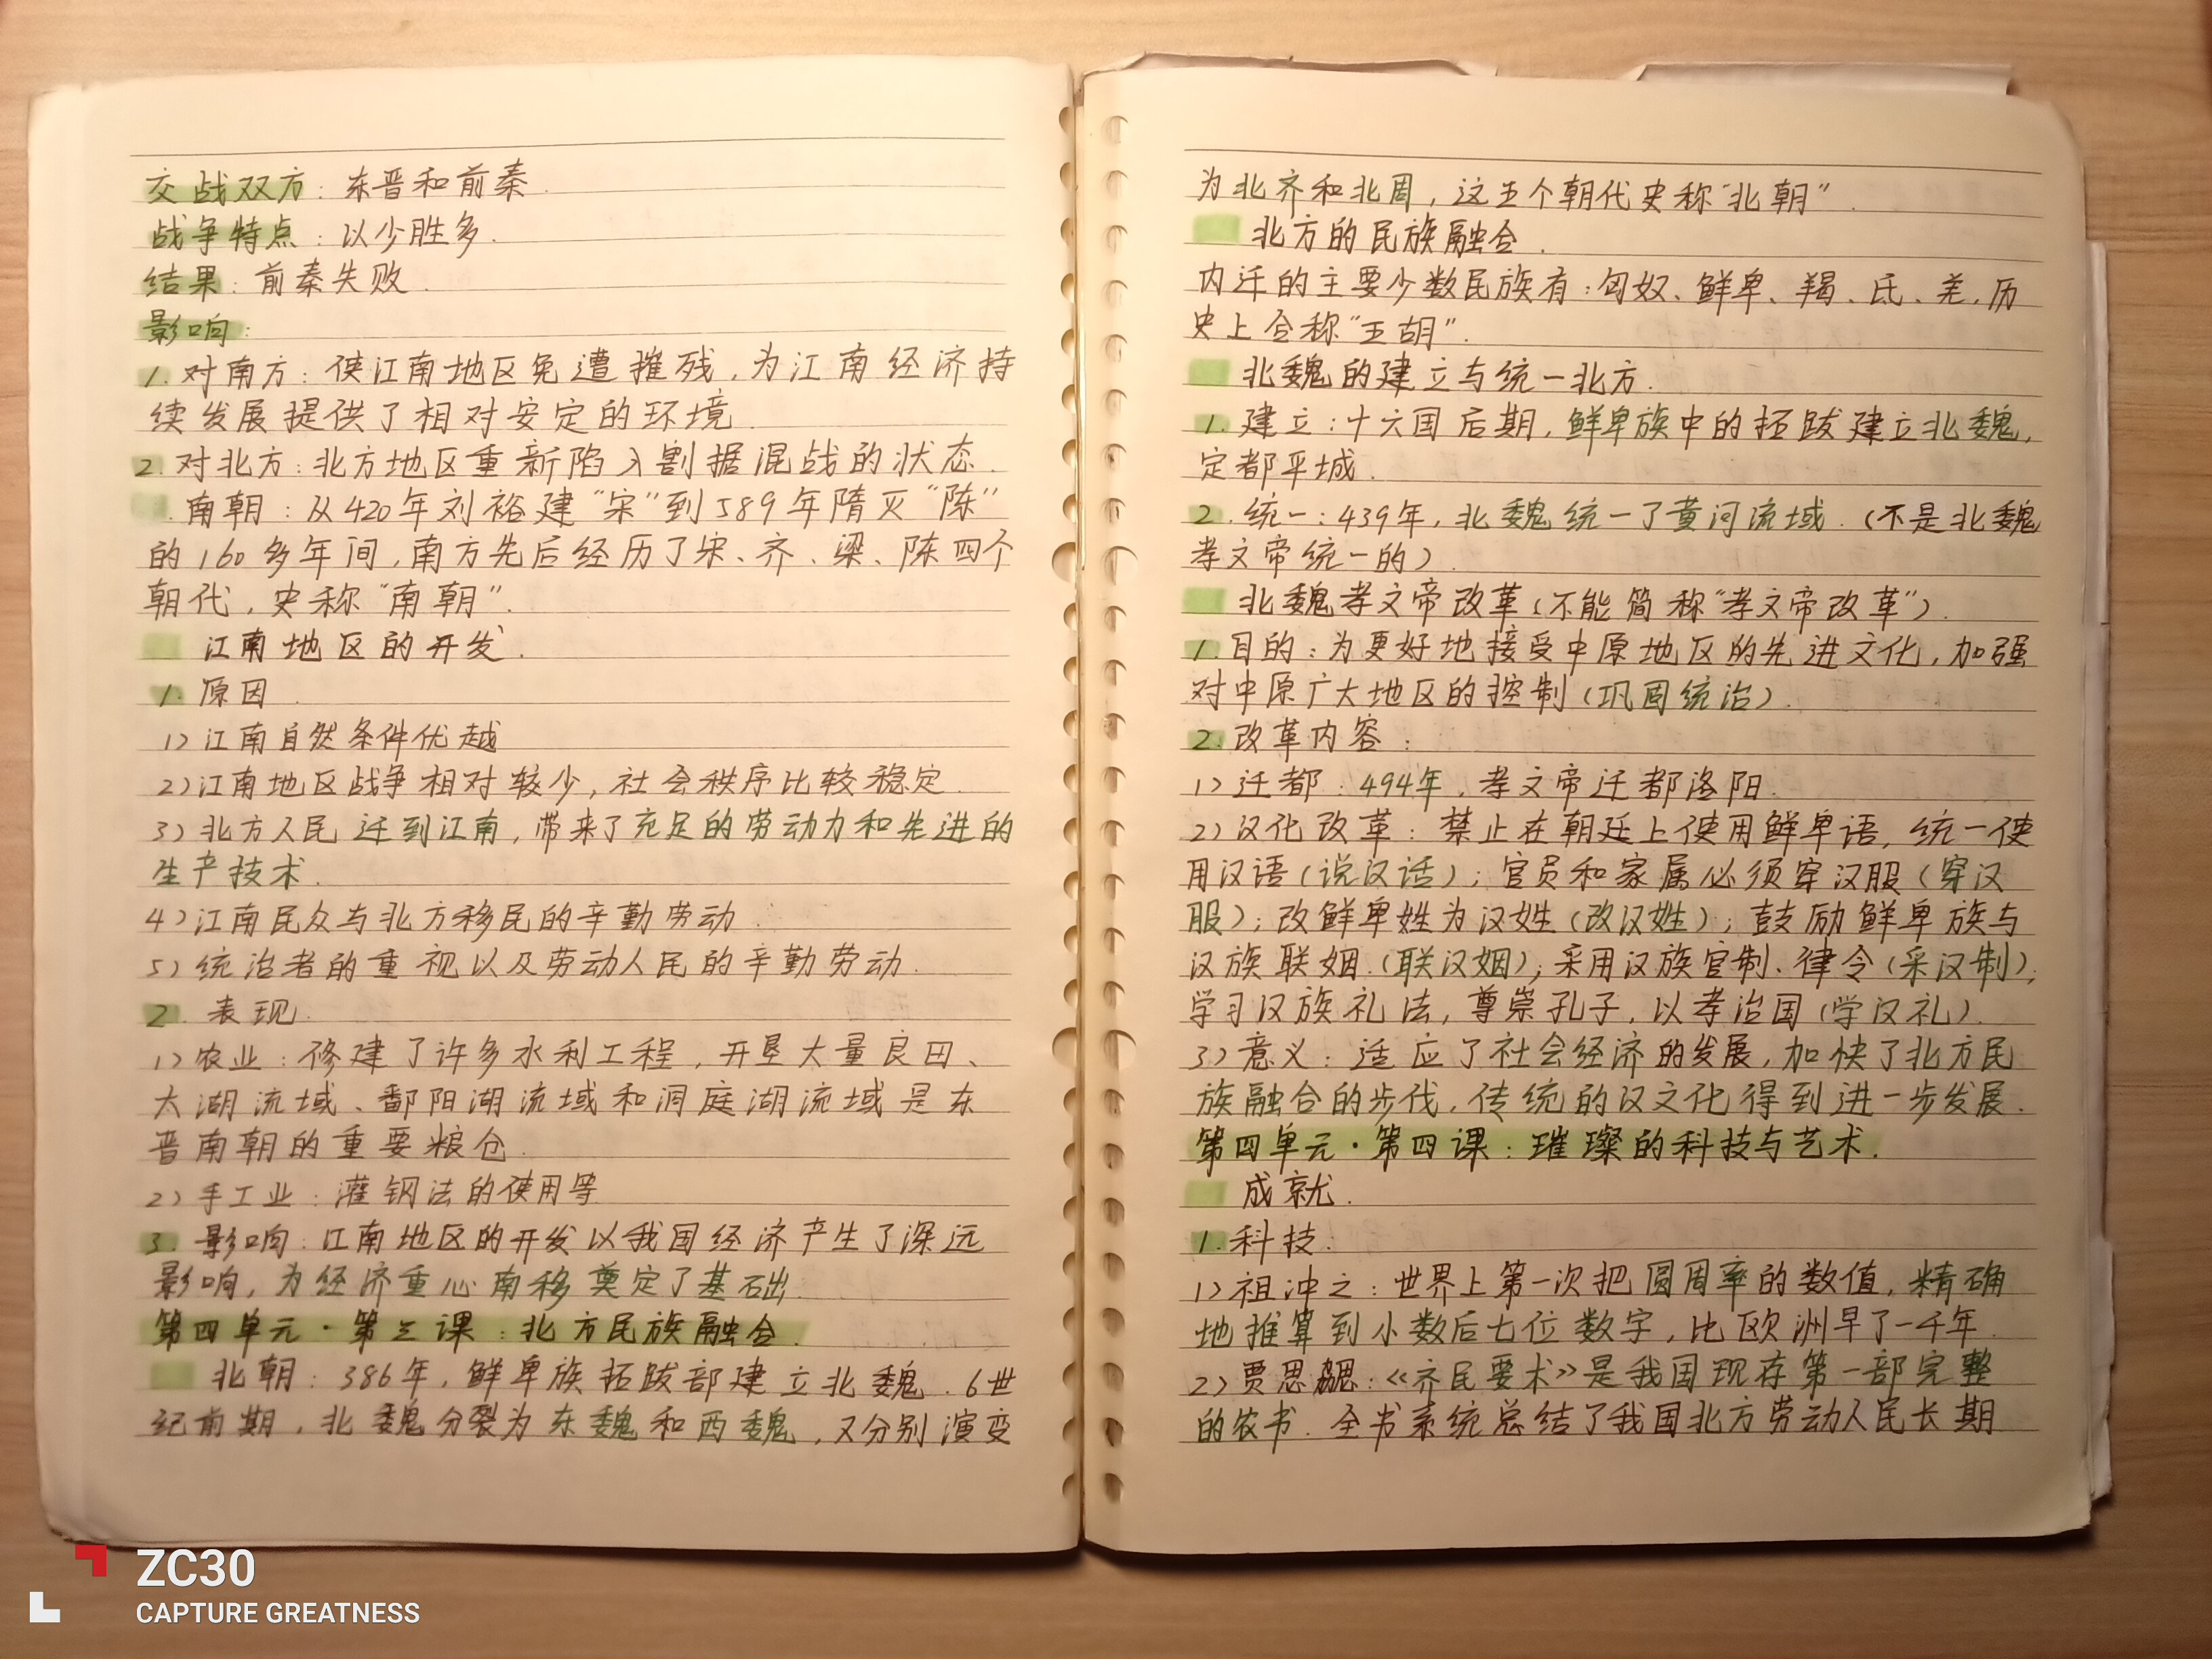 交战双方：东晋和前秦.
战争特点：以少胜多.
结果：前秦失败.
影响：
1.对南方：使江南地区免遭摧残，为江南经济持
续发展提供了相对安定的环境.
2.对北方：北方地区重新陷入割据混战的状态.
.南朝：从420年刘裕建“宋”到589年隋灭“陈”
的160多年间，南方先后经历了宋、齐、梁、陈四个
朝代，史称“南朝”.
江南地区的开发.
1.原因.
1)江南自然条件优越
2)江南地区战争相对较少，社会秩序比较稳定.
3)北方人民迁到江南，带来了充足的劳动力和先进的
生产技术.
4)江南民众与北方移民的辛勤劳动.
5)统治者的重视以及劳动人民的辛勤劳动.
2.表现.
1)农业：修建了许多水利工程，开垦大量良田、
太湖流域、鄱阳湖流域和洞庭湖流域是东
晋南朝的重要粮仓.
2)手工业：灌钢法的使用等
3.影响：江南地区的开发以我国经济产生了深远
影响，为经济重心南移奠定了基础.
第四单元·第三课：北方民族融合.
北朝：386年，鲜卑族拓跋部建立北魏.6世
纪前期，北魏分裂为东魏和西魏，又分别演变
为北齐和北周，这五个朝代史称“北朝”.
北方的民族融合.
内迁的主要少数民族有：匈奴、鲜卑、羯、氐、羌，历
史上合称“五胡”.
北魏的建立与统一北方.
1.建立：十六国后期，鲜卑族中的拓跋建立北魏，
定都平城.
2.统一：439年，北魏统一了黄河流域.(不是北魏
孝文帝统一的).
北魏孝文帝改革(不能简称“孝文帝改革”).
1.目的：为更好地接受中原地区的先进文化，加强
对中原广大地区的控制(巩固统治).
2.改革内容：
1)迁都：494年，孝文帝迁都洛阳.
2)汉化改革：禁止在朝廷上使用鲜卑语，统一使
用汉语(说汉话)；官员和家属必须穿汉服(穿汉
服)；改鲜卑姓为汉姓(改汉姓)；鼓励鲜卑族与
汉族联姻.(联汉姻)；采用汉族官制、律令(采汉制)；
学习汉族礼法，尊崇孔子，以孝治国(学汉礼).
3)意义：适应了社会经济的发展，加快了北方民
族融合的步伐，传统的汉文化得到进一步发展.
第四单元·第四课：璀璨的科技与艺术.
成就.
1.科技：
1)祖冲之：世界上第一次把圆周率的数值，精确
地推算到小数后七位数字，比欧洲早了一千年.
2)贾思勰：《齐民要术》是我国现存第一部完整
的农书.全书系统总结了我国北方劳动人民长期
ZC30
CAPTURE GREATNESS